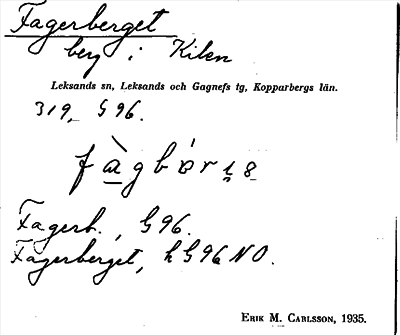 Fagerberget
berg i Kilen
Leksands sn, Leksands och Gagnefs tg, Kopparbergs län.
319, G 96.
Fagerb., G 96.
Fagerberget, h G 96 NO.
ERIK M. CARLSSON, 1935.